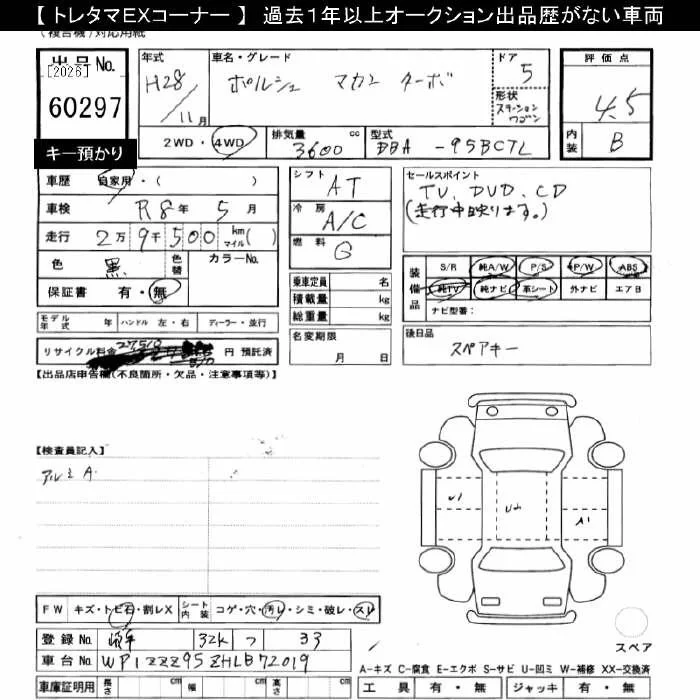 【 トレタマEXコーナー 】 過去1年以上オークション出品歴がない車両
(複合機)対応用紙
出品No.
[2026]
60297
キー預かり
年式
H28/11月
車名・グレード
ポルシェ マカン ターボ
ドア
5
形状
ステーションワゴン
評価点
4.5
内装
B
2WD・4WD
排気量 3600 cc
型式 BBA - 95BCTL
車歴 自家用・( )
車検 R8年 5月
走行 2万9千500km マイル( )
色 黒 色替 カラーNo.
保証書 有・無
シフト AT
冷房 A/C
燃料 G
乗車定員 名
積載量 kg
総重量 kg
名変期限
月 日
セールスポイント
TV、DVD、CD
(走行中映ります。)
装備品
S/R 純A/W P/S P/W ABS
純TV 純ナビ 革シート 外ナビ エアB
ナビ型番:
後日品
スペアキー
モデル年式 年 ハンドル 左・右 ディーラー・並行
リサイクル料金 円 預託済
【出品店申告欄(不良箇所・欠品・注意事項等)】
【検査員記入】
アルミ A
U1
A1
FW キズ・トビ石・割レX シート内装 コゲ・穴・汚レ・シミ・破レ・スレ
登録No. 32K つ 33
車台No. WP1ZZZ95ZHLB72019
車庫証明用 長さ cm 幅 cm 高さ cm
スペア
A-キズ C-腐食 E-エクボ S-サビ U-凹ミ W-補修 XX-交換済
工具 有・無 ジャッキ 有・無